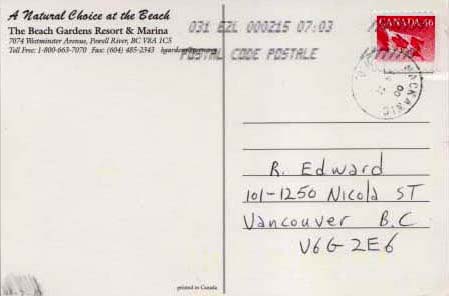 A Natural Choice at the Beach
The Beach Gardens Resort & Marina
7074 Westminster Avenue, Powell River, BC V8A 1C5
Toll Free: 1-800-663-7070 Fax: (604) 485-2343
031 EZL 000215 07:03
POSTAL CODE POSTALE
CANADA 46
R. Edward
101-1250 Nicola ST
Vancouver B.C
V6G 2E6
printed in Canada